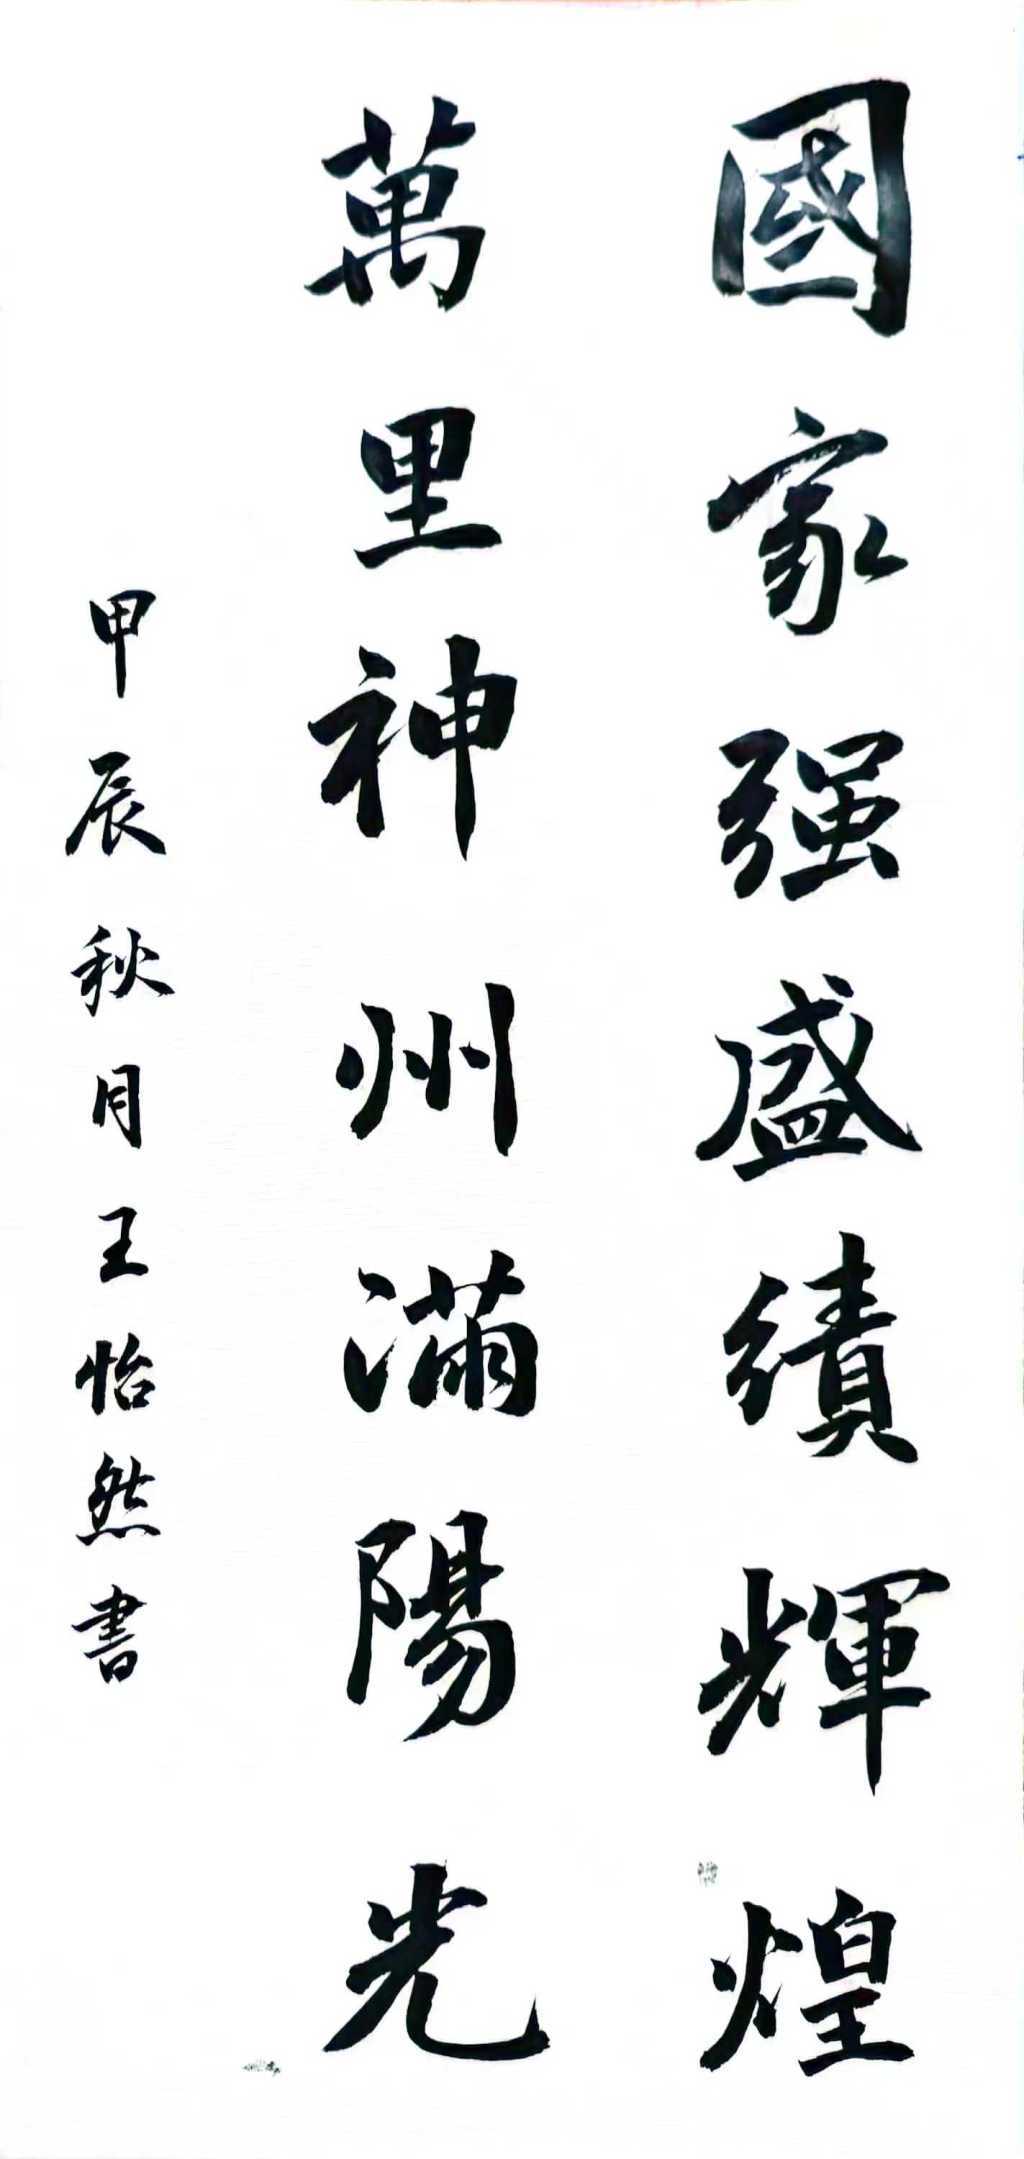 國家强盛績輝煌
萬里神州滿陽光
甲辰秋月王怡然書